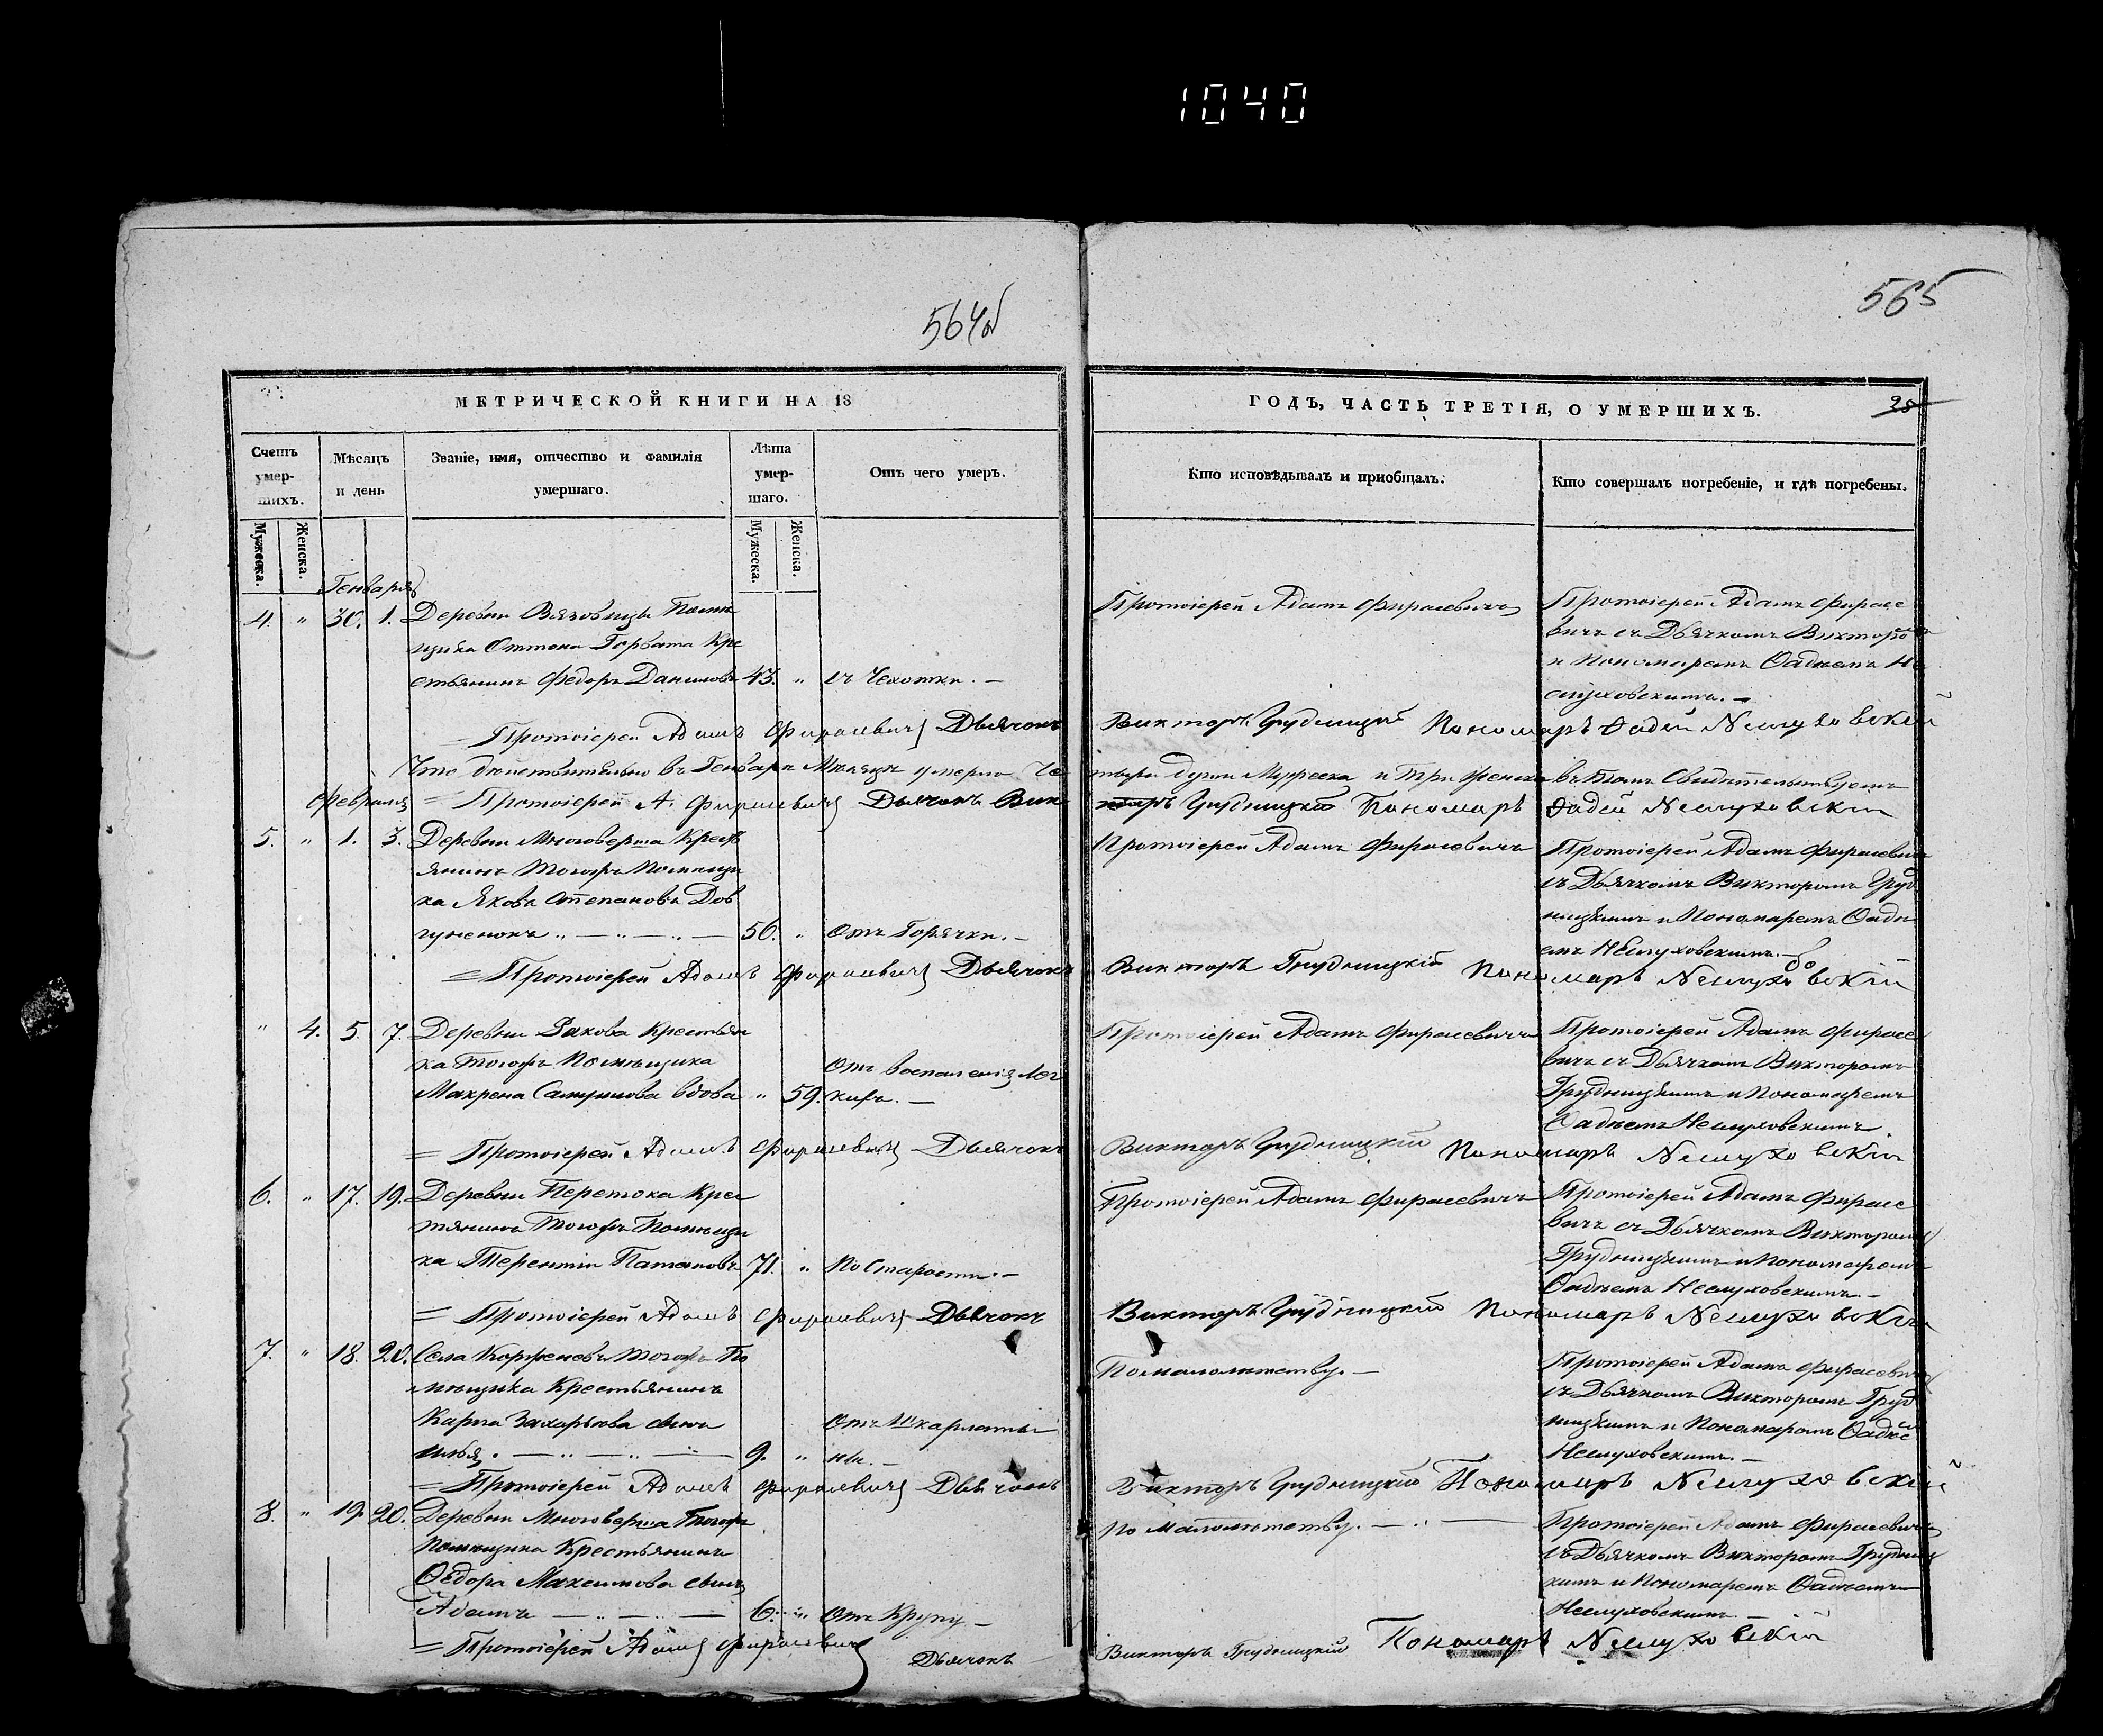 1040
564об
565
МЕТРИЧЕСКОЙ КНИГИ НА 18
ГОДЪ, ЧАСТЬ ТРЕТІЯ, О УМЕРШИХЪ.
28
Счетъ умер-шихъ.
Мѣсяцъ и день
Званіе, имя, отчество и фамилія умершаго.
Лѣта умер-шаго.
Отъ чего умеръ.
Кто исповѣдывалъ и пріобщалъ.
Кто совершалъ погребеніе, и гдѣ погребены.
Мужеска.
Женска.
Мужеска.
Женска.
Генваря
4. " 30. 1. Деревни Вязовицы Помѣ
щика Оттона Горвата Кре
стьянинъ Федоръ Даниловъ 43. " съ Чахотки. —
Протоіерей Адамъ Фирасевичъ
Протоіерей Адамъ Фирасе
вичъ съ Дьячкомъ Викторо
и Пономаремъ Фадѣемъ Не
слуховскимъ. —
Протоіерей Адамъ Фирасевичъ Дьячокъ Викторъ Грудницкій Пономарь Фадей Неслуховскій
Что дѣйствительно въ Генварѣ Мѣсяцѣ умерло Че тыре души Мужеска и Три Женска въ томъ Свидѣтельствуемъ
Февраля = Протоіерей А. Фирасевичъ Дьячокъ Вик торъ Грудницкій Пономарь Фадей Неслуховскій
5. " 1. 3. Деревни Многоверша Крест
янинъ Тогожъ Помѣщи
ка Яковъ Степановъ Дов
гуненокъ 56. " Отъ Горячки. —
Протоіерей Адамъ Фирасевичъ
Протоіерей Адамъ Фирасевичъ
съ Дьячкомъ Викторомъ Груд
ницкимъ и Пономаремъ Фадѣ
емъ Неслуховскимъ. —
= Протоіерей Адамъ Фирасевичъ Дьячокъ Викторъ Грудницкій Пономарь Неслуховскій
" 4. 5. 7. Деревни Рахова Крестьян
ка Тогожъ Помѣщика
Макрена Самуилова вдова " 59. Отъ воспаленія лег
кихъ. —
Протоіерей Адамъ Фирасевичъ
Протоіерей Адамъ Фирасе
вичъ съ Дьячкомъ Викторомъ
Грудницкимъ и Пономаремъ
Фадѣемъ Неслуховскимъ
= Протоіерей Адамъ Фирасевичъ Дьячокъ Викторъ Грудницкій Пономарь Неслуховскій
6. " 17. 19. Деревни Перетока Крес
тянинъ Тогожъ Помѣщи
ка Терентій Патаповъ 71. " По Старости. —
Протоіерей Адамъ Фирасевичъ
Протоіерей Адамъ Фирасе
вичъ съ Дьячкомъ Викторомъ
Грудницкимъ и Пономаремъ
Фадѣемъ Неслуховскимъ. —
= Протоіерей Адамъ Фирасевичъ Дьячокъ Викторъ Грудницкій Пономарь Неслуховскій
7. " 18. 20. Села Корженевъ Тогожъ По
мѣщика Крестьянинъ
Карпа Захарьова сынъ
Илья. 9. " Отъ Шкарлати
ны. —
По малолѣтству. —
Протоіерей Адамъ Фирасевичъ
съ Дьячкомъ Викторомъ Груд
ницкимъ и Пономаремъ Фадѣе
Неслуховскимъ —
= Протоіерей Адамъ Фирасевичъ Дьячокъ Викторъ Грудницкій Пономарь Неслуховскій
8. " 19. 20. Деревни Многоверша Тогожъ
Помѣщика Крестьянинъ
Федора Максимова сынъ
Адамъ 6. " Отъ Крупу —
По малолѣтству. —
Протоіерей Адамъ Фирасевичъ
съ Дьячкомъ Викторомъ Грудниц
кимъ и Пономаремъ Фадѣемъ
Неслуховскимъ —
= Протоіерей Адамъ Фирасевичъ Дьячокъ Викторъ Грудницкій Пономарь Неслуховскій